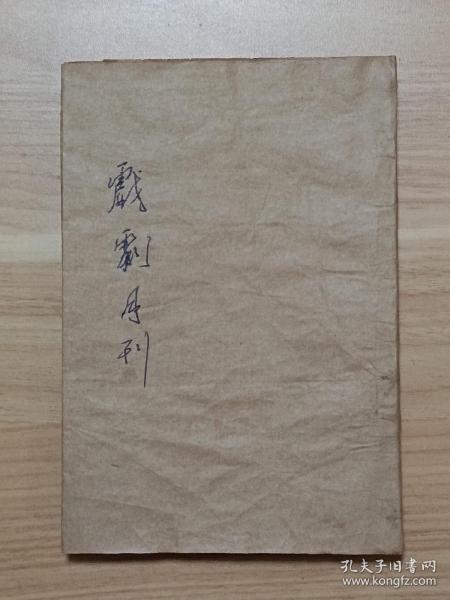 戲劇月刊
孔夫子旧书网
www.kongfz.com